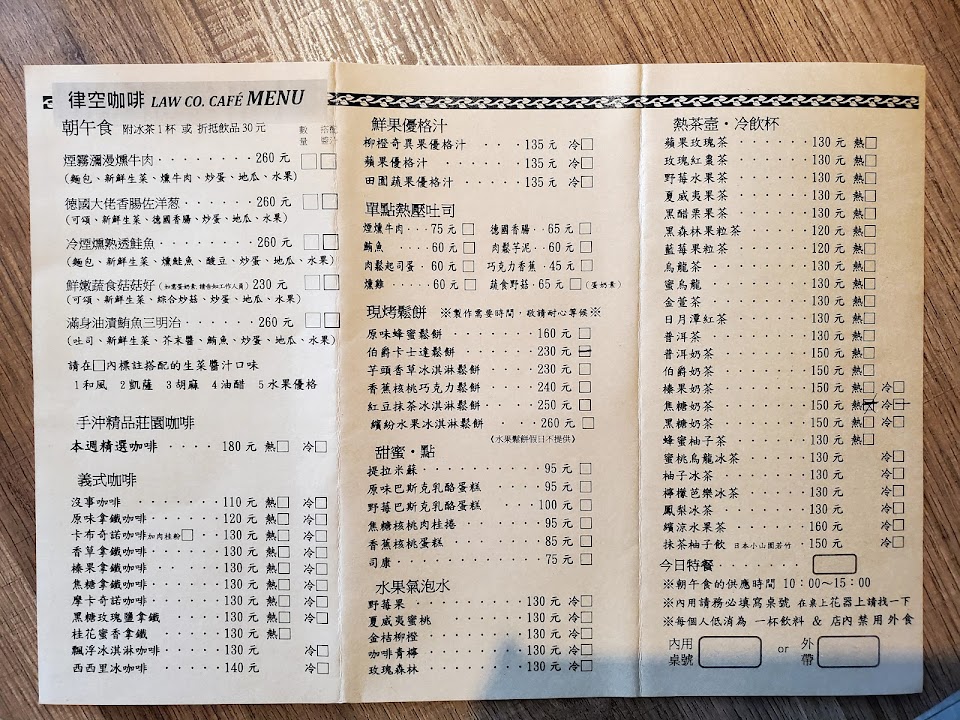 律空咖啡 LAW CO. CAFÉ MENU
朝午食 附冰茶1杯 或 折抵飲品30元 數量 搭配醬汁
煙霧瀰漫燻牛肉 · · · · · · · · 260 元 □ □
(麵包、新鮮生菜、燻牛肉、炒蛋、地瓜、水果)
德國大佬香腸佐洋葱 · · · · · · · 260 元 □ □
(可頌、新鮮生菜、德國香腸、炒蛋、地瓜、水果)
冷煙燻熟透鮭魚 · · · · · · · · 260 元 □ □
(麵包、新鮮生菜、燻鮭魚、酸豆、炒蛋、地瓜、水果)
鮮嫩蔬食菇菇好 (如需蛋奶素 請告知工作人員) 230 元 □ □
(可頌、新鮮生菜、綜合炒菇、炒蛋、地瓜、水果)
滿身油漬鮪魚三明治 · · · · · · · 260 元 □ □
(吐司、新鮮生菜、芥末醬、鮪魚、炒蛋、地瓜、水果)
請在□內標註搭配的生菜醬汁口味
1和風 2凱薩 3胡麻 4油醋 5水果優格
手沖精品莊園咖啡
本週精選咖啡 · · · · 180 元 熱□ 冷□
義式咖啡
沒事咖啡 · · · · · · · 110 元 熱□ 冷□
原味拿鐵咖啡 · · · · · 120 元 熱□ 冷□
卡布奇諾咖啡加肉桂粉□ · · 130 元 熱□ 冷□
香草拿鐵咖啡 · · · · · 130 元 熱□ 冷□
榛果拿鐵咖啡 · · · · · 130 元 熱□ 冷□
焦糖拿鐵咖啡 · · · · · 130 元 熱□ 冷□
摩卡奇諾咖啡 · · · · · 130 元 熱□ 冷□
黑糖玫瑰鹽拿鐵 · · · · 130 元 熱□ 冷□
桂花蜜香拿鐵 · · · · · 130 元 熱□
飄浮冰淇淋咖啡 · · · · 130 元 冷□
西西里冰咖啡 · · · · · 140 元 冷□
鮮果優格汁
柳橙奇異果優格汁 · · · 135 元 冷□
蘋果優格汁 · · · · · · 135 元 冷□
田園蔬果優格汁 · · · · 135 元 冷□
單點熱壓吐司
煙燻牛肉 · · 75 元 □ 德國香腸 · · 65 元 □
鮪魚 · · · · 60 元 □ 肉鬆芋泥 · · 60 元 □
肉鬆起司蛋 · 60 元 □ 巧克力香蕉 · 45 元 □
燻雞 · · · · 60 元 □ 蔬食野菇 · · 65 元 □ (蛋奶素)
現烤鬆餅 ※製作需要時間，敬請耐心等候※
原味蜂蜜鬆餅 · · · · · · 160 元 □
伯爵卡士達鬆餅 · · · · · · 230 元 □
芋頭香草冰淇淋鬆餅 · · · · 230 元 □
香蕉核桃巧克力鬆餅 · · · · 240 元 □
紅豆抹茶冰淇淋鬆餅 · · · · 250 元 □
繽紛水果冰淇淋鬆餅 · · · · 260 元 □
(水果鬆餅假日不提供)
甜蜜·點
提拉米蘇 · · · · · · · · · 95 元 □
原味巴斯克乳酪蛋糕 · · · · 95 元 □
野莓巴斯克乳酪蛋糕 · · · · 100 元 □
焦糖核桃肉桂捲 · · · · · · 95 元 □
香蕉核桃蛋糕 · · · · · · · 85 元 □
司康 · · · · · · · · · · · 75 元 □
水果氣泡水
野莓果 · · · · · · · · 130 元 冷□
夏威夷蜜桃 · · · · · · 130 元 冷□
金桔柳橙 · · · · · · · 130 元 冷□
咖啡青檸 · · · · · · · 130 元 冷□
玫瑰森林 · · · · · · · 130 元 冷□
熱茶壺·冷飲杯
蘋果玫瑰茶 · · · · · · 130 元 熱□
玫瑰紅棗茶 · · · · · · 130 元 熱□
野莓水果茶 · · · · · · 130 元 熱□
夏威夷果茶 · · · · · · 130 元 熱□
黑醋栗果茶 · · · · · · 130 元 熱□
黑森林果粒茶 · · · · · 120 元 熱□
藍莓果粒茶 · · · · · · 120 元 熱□
烏龍茶 · · · · · · · · 130 元 熱□
蜜烏龍 · · · · · · · · 130 元 熱□
金萱茶 · · · · · · · · 130 元 熱□
日月潭紅茶 · · · · · · 130 元 熱□
普洱茶 · · · · · · · · 130 元 熱□
普洱奶茶 · · · · · · · 150 元 熱□
伯爵奶茶 · · · · · · · 150 元 熱□
榛果奶茶 · · · · · · · 150 元 熱□ 冷□
焦糖奶茶 · · · · · · · 150 元 熱□ 冷□
黑糖奶茶 · · · · · · · 150 元 熱□ 冷□
蜂蜜柚子茶 · · · · · · 130 元 熱□
蜜桃烏龍冰茶 · · · · · 130 元 冷□
柚子冰茶 · · · · · · · 130 元 冷□
檸檬芭樂冰茶 · · · · · 130 元 冷□
鳳梨冰茶 · · · · · · · 130 元 冷□
繽涼水果茶 · · · · · · 160 元 冷□
抹茶柚子飲 日本小山園若竹 · · 150 元 冷□
今日特餐 · · · · · · ·
※朝午食的供應時間 10：00～15：00
※內用請務必填寫桌號 在桌上花器上請找一下
※每個人低消為 一杯飲料 & 店內 禁用外食
內用桌號 or 外帶